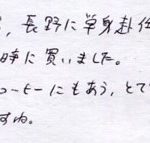 、長野に単身赴任
時に買いました。
コーヒーにもあう、とて
すね。